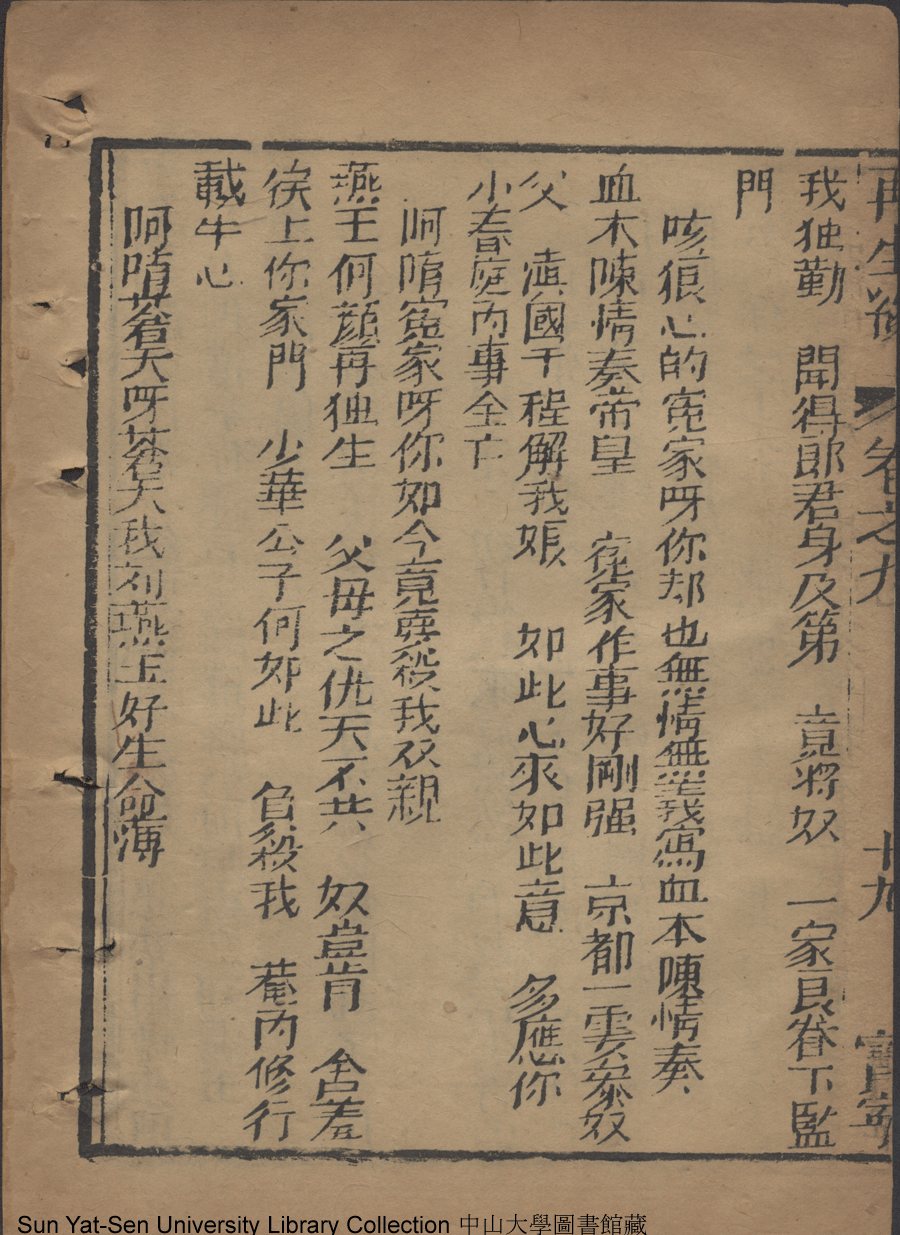 再生緣 卷之九 十九
我独勤 聞得郎君身及第 竟將奴 一家良眷下監
門
咳狠心的寃家呀你却也無情無義我寫血本陳情奏
血木陳情奏帝皇 寃家作事好剛强 京都一 奴
父 滇國千程解我娘 如此心來如此意 多應你
小春庭内事全亡
阿隋寃家呀你如今竟要殺我双親
燕王何顔再独生 父母之仇天不共 奴豈肯 含羞
侯上你家門 少華公子何如此 負殺我 菴内修行
載牛心
阿隋蒼天呀蒼天我刘燕玉好生命薄
Sun Yat-Sen University Library Collection 中山大學圖書館藏